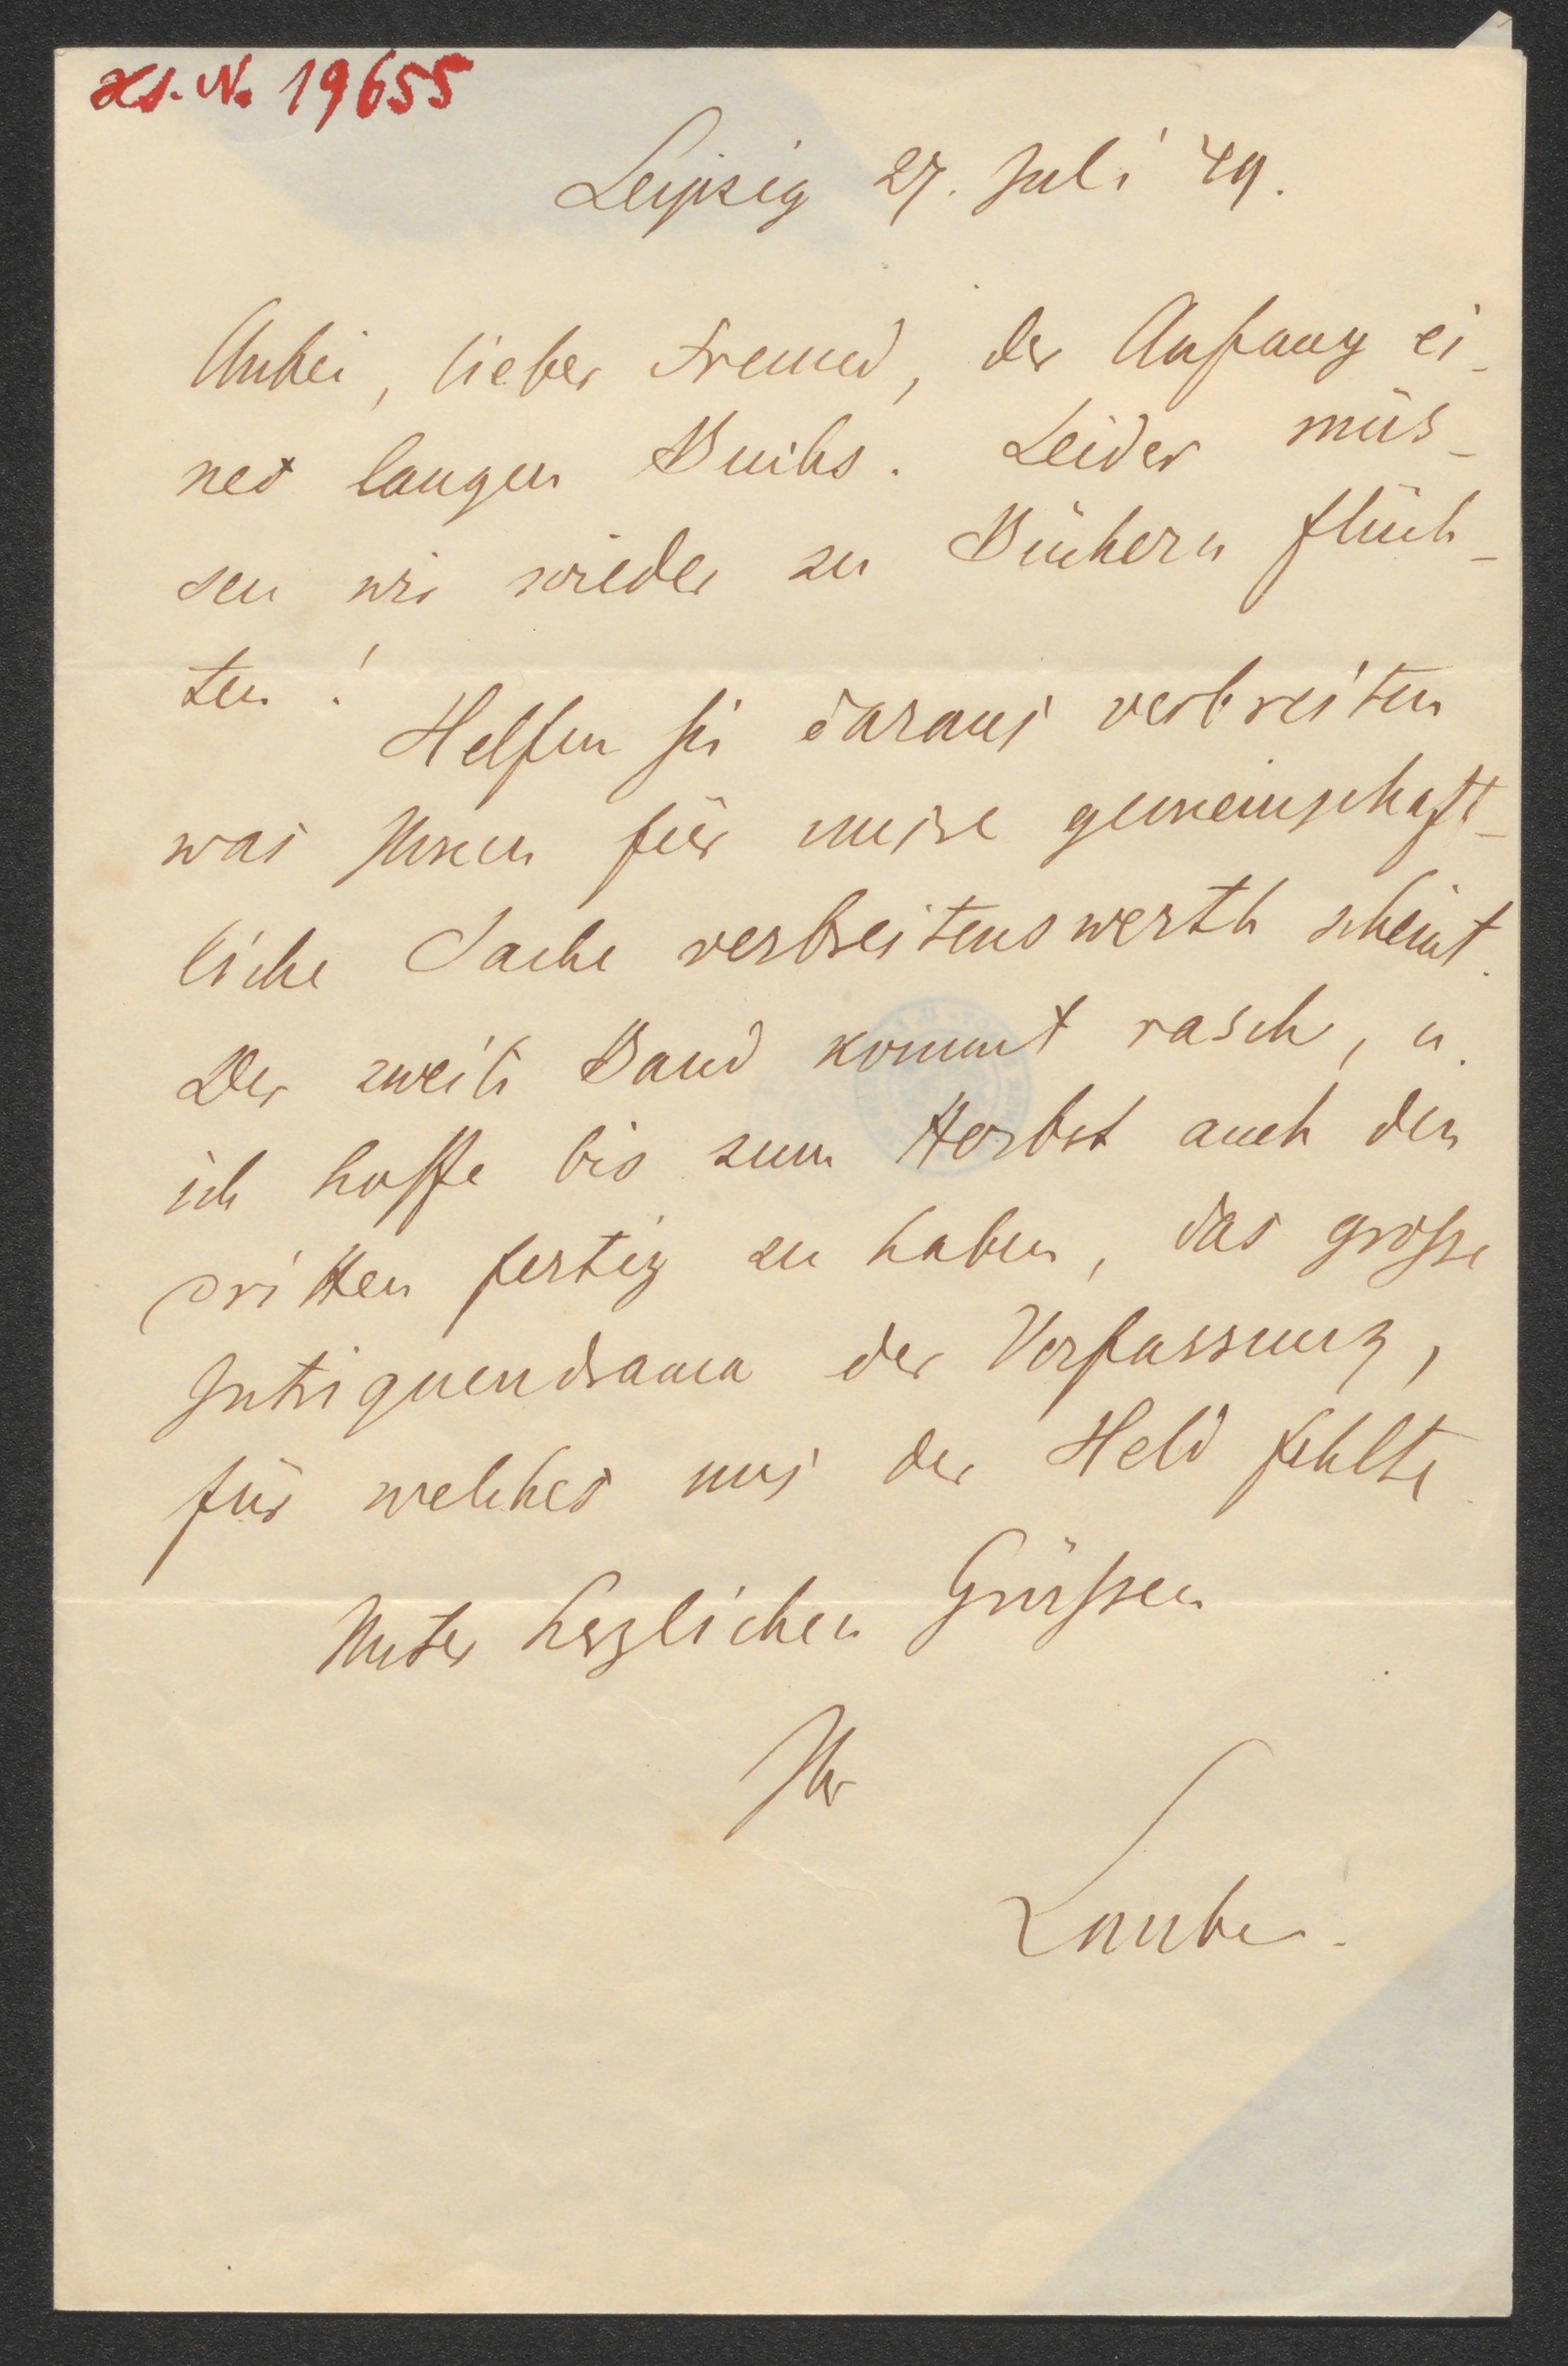 Hs. N. 19655
Leipzig 27. Juli 49.
Anbei, lieber Freund, der Anfang ei-
nes langen Buchs. Leider müs-
sen wir wieder zu Büchern flüch-
ten!
Helfen Sie daraus verbreiten
was Ihnen für unsre gemeinschaft-
liche Sache verbreitenswerth scheint.
Der zweite Band kommt rasch, u.
ich hoffe bis zum Herbst auch den
dritten fertig zu haben, das grosse
Intriguendrama der Verfassung,
für welches uns der Held fehlte.
Unter herzlichen Grüssen
Ihr
Laube.